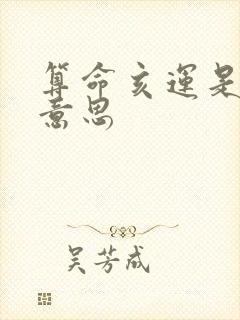 算命亥運是
意思
吴芳成